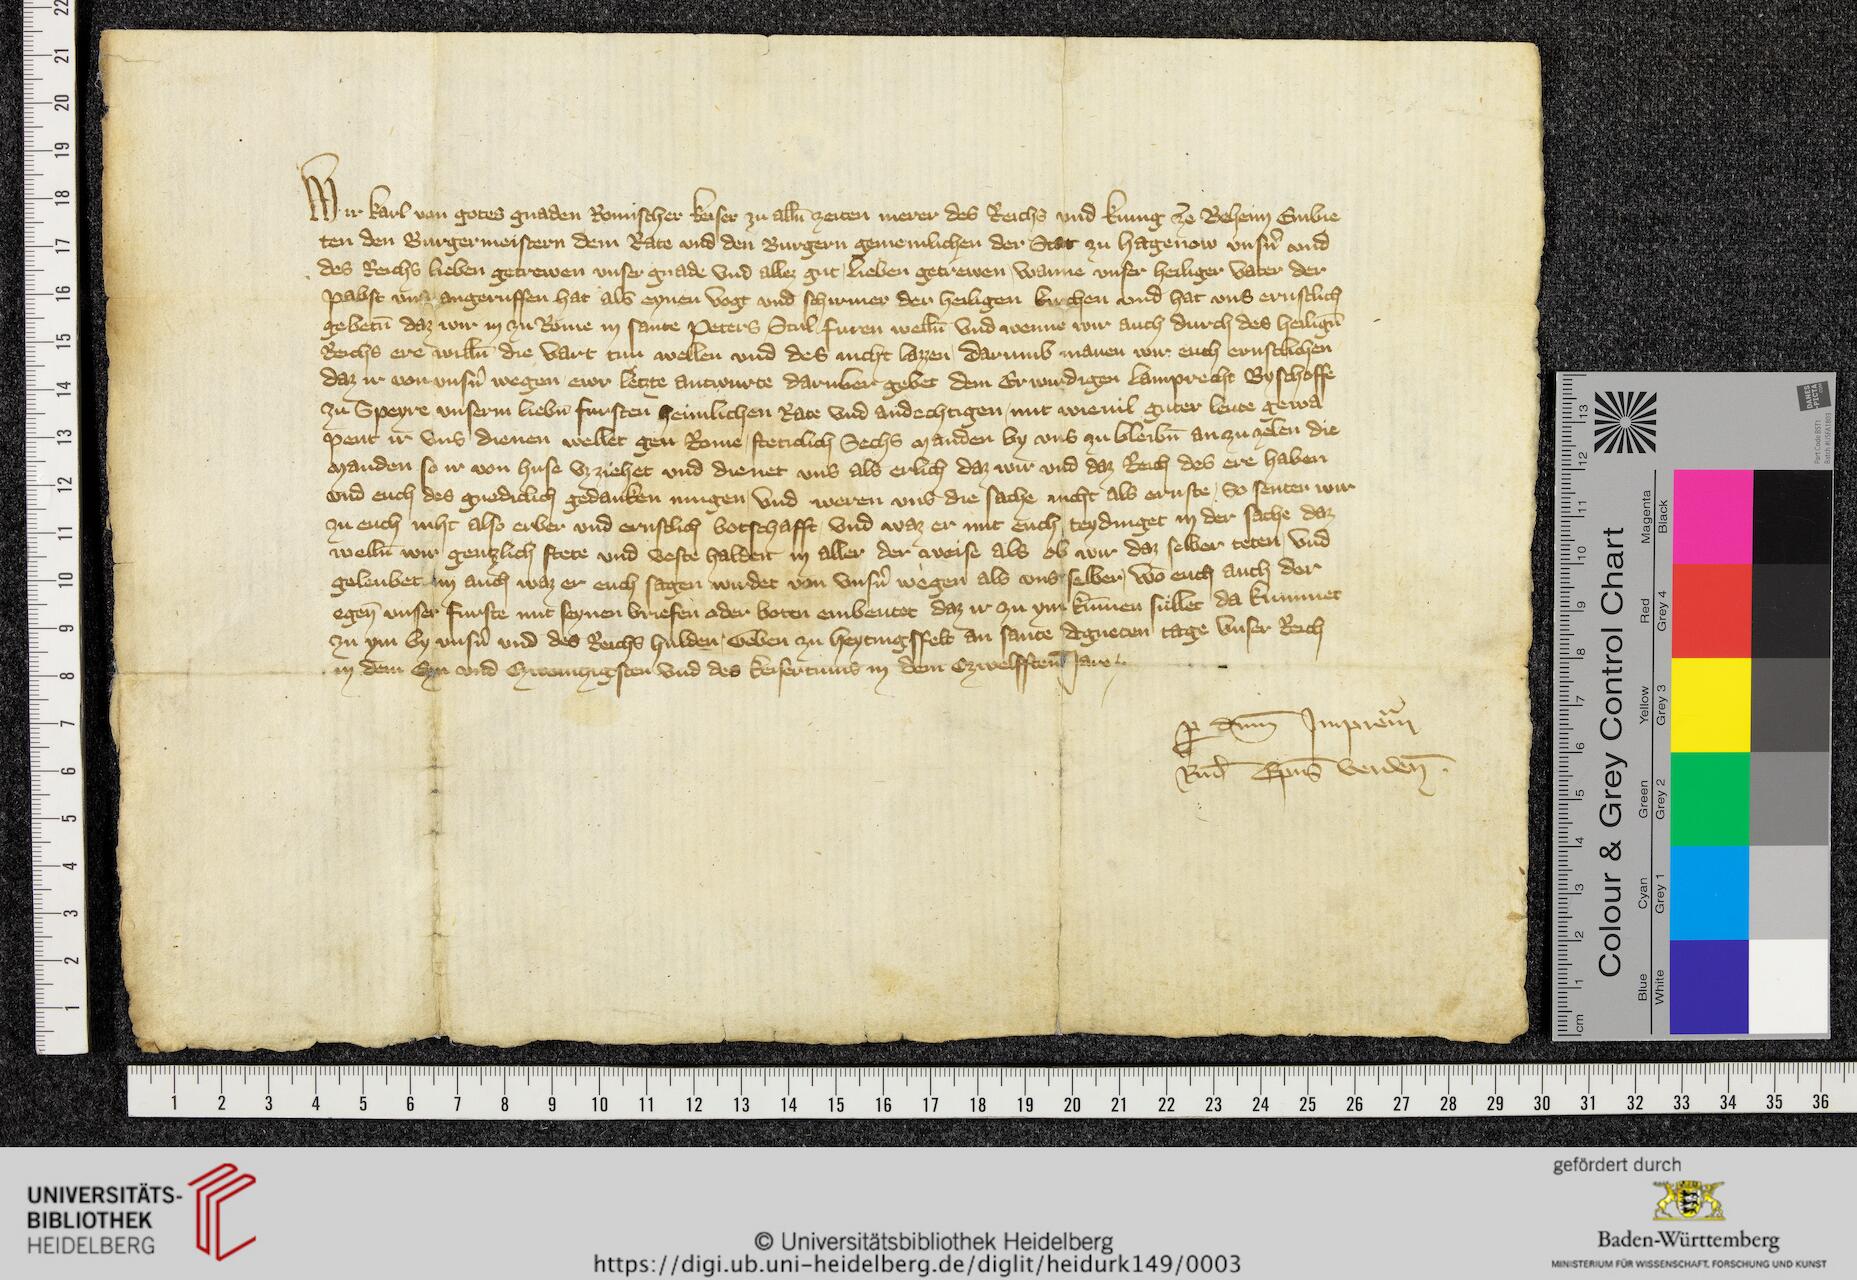 Wir karl von gotes gnaden Romischer keiser zu alln̄ zeiten merer des Reichs vnd kunig ze Beheim Embie
ten den Burgermeistern dem Rate vnd den Burgern gemeinlichen der Stat zu Hagenow vnsn̄ vnd
des Reichs lieben getrewen vnser gnade vnd allez gut, Lieben getrewen, wanne vnser heiliger vater der
Pabst vns angeruffen hat als eynen vogt vnd schirmer der heiligen kirchen vnd hat vns ernstlich
gebetn̄ daz wir in zu Rome in sante Peters Stul furen welln̄ vnd wenne wir auch durch des heilign̄
Reichs ere willn̄ die vart tun wellen vnd des nicht lazzen, Darumb manen wir euch ernstlichen
daz ir von vnsn̄ wegen ewr letzte antwurte daruber gebet dem Erwirdigen Lamprecht Byschoffe
zu Speyre vnserm liebn̄ fursten heimlichen Rate vnd andechtigen, mit wieuil guter leute gewa
pent ir vns dienen wellet gen Rome, steticlich Sechs manden by vns zu bleibn̄ an zu zelen die
manden so ir von huse vzziehet vnd dienet vns als erlich daz wir vnd daz Reich des ere haben
vnd euch des gnediclich gedanken mugen, vnd weren vns die sache nicht als ernste, So senten wir
zu euch niht also erber vnd ernstlich botschafft, vnd waz er mit euch teydinget in der sache daz
welln̄ wir gentzlich stete vnd veste halden in aller der weise als ob wir daz selber teten, vnd
geleubet im auch waz er euch sagen wirdet von vnsn̄ wegen als vns selber, wo euch auch der
egen̄ vnser furste mit seynen briefen oder boten embeutet daz ir zu ym kūmen sullet da kummet
zu ym by vnsn̄ vnd des Reichs hulden, Geben zu Heytingsfelt an sante Agneten tage vnser Reich
in dem Eyn vnd Czweintzigsten vnd des keisertums in dem Czwelfften Jare.
ꝑ dn̄m Imperat
Rud Ep̄us verden̄.
22
21
20
19
18
17
16
15
14
13
12
11
10
9
8
7
6
5
4
3
2
1
1 2 3 4 5 6 7 8 9 10 11 12 13 14 15 16 17 18 19 20 21 22 23 24 25 26 27 28 29 30 31 32 33 34 35 36
Colour & Grey Control Chart
Blue Cyan Green Yellow Red Magenta
White Grey 1 Grey 2 Grey 3 Grey 4 Black
cm 1 2 3 4 5 6 7 8 9 10 11 12 13
DANES
PICTA
UNIVERSITÄTS-
BIBLIOTHEK
HEIDELBERG
© Universitätsbibliothek Heidelberg
https://digi.ub.uni-heidelberg.de/diglit/heidurk149/0003
gefördert durch
Baden-Württemberg
MINISTERIUM FÜR WISSENSCHAFT, FORSCHUNG UND KUNST